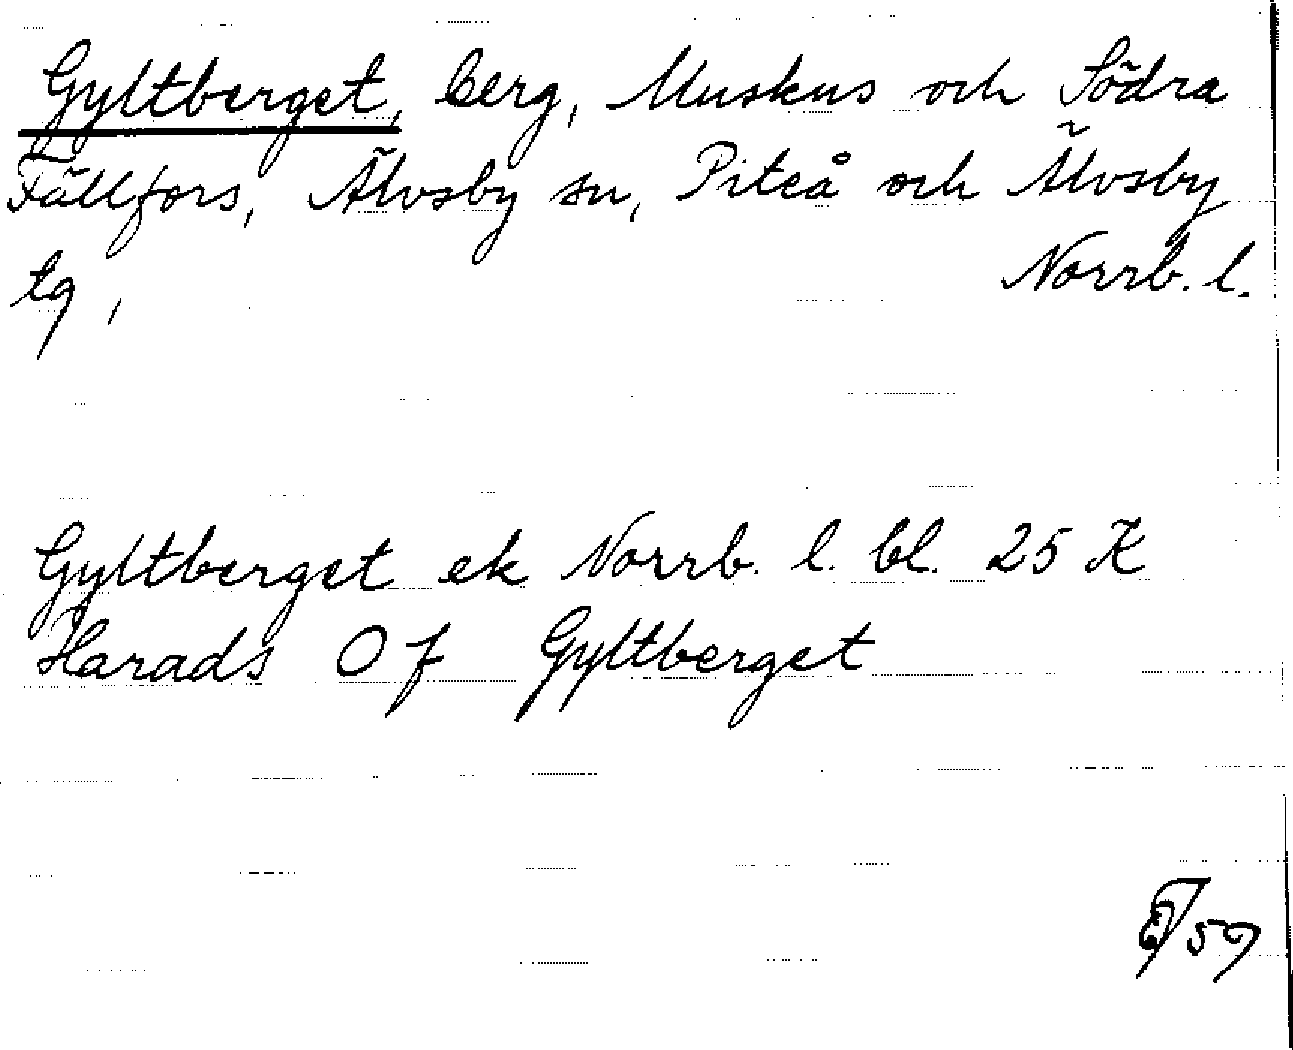 Gyltberget, berg, Muskus och Södra
Fällfors, Älvsby sn, Piteå och Älvsby
tg, Norrb. l.
Gyltberget ek Norrb. l. bl. 25 K
Harads Of Gyltberget
/59